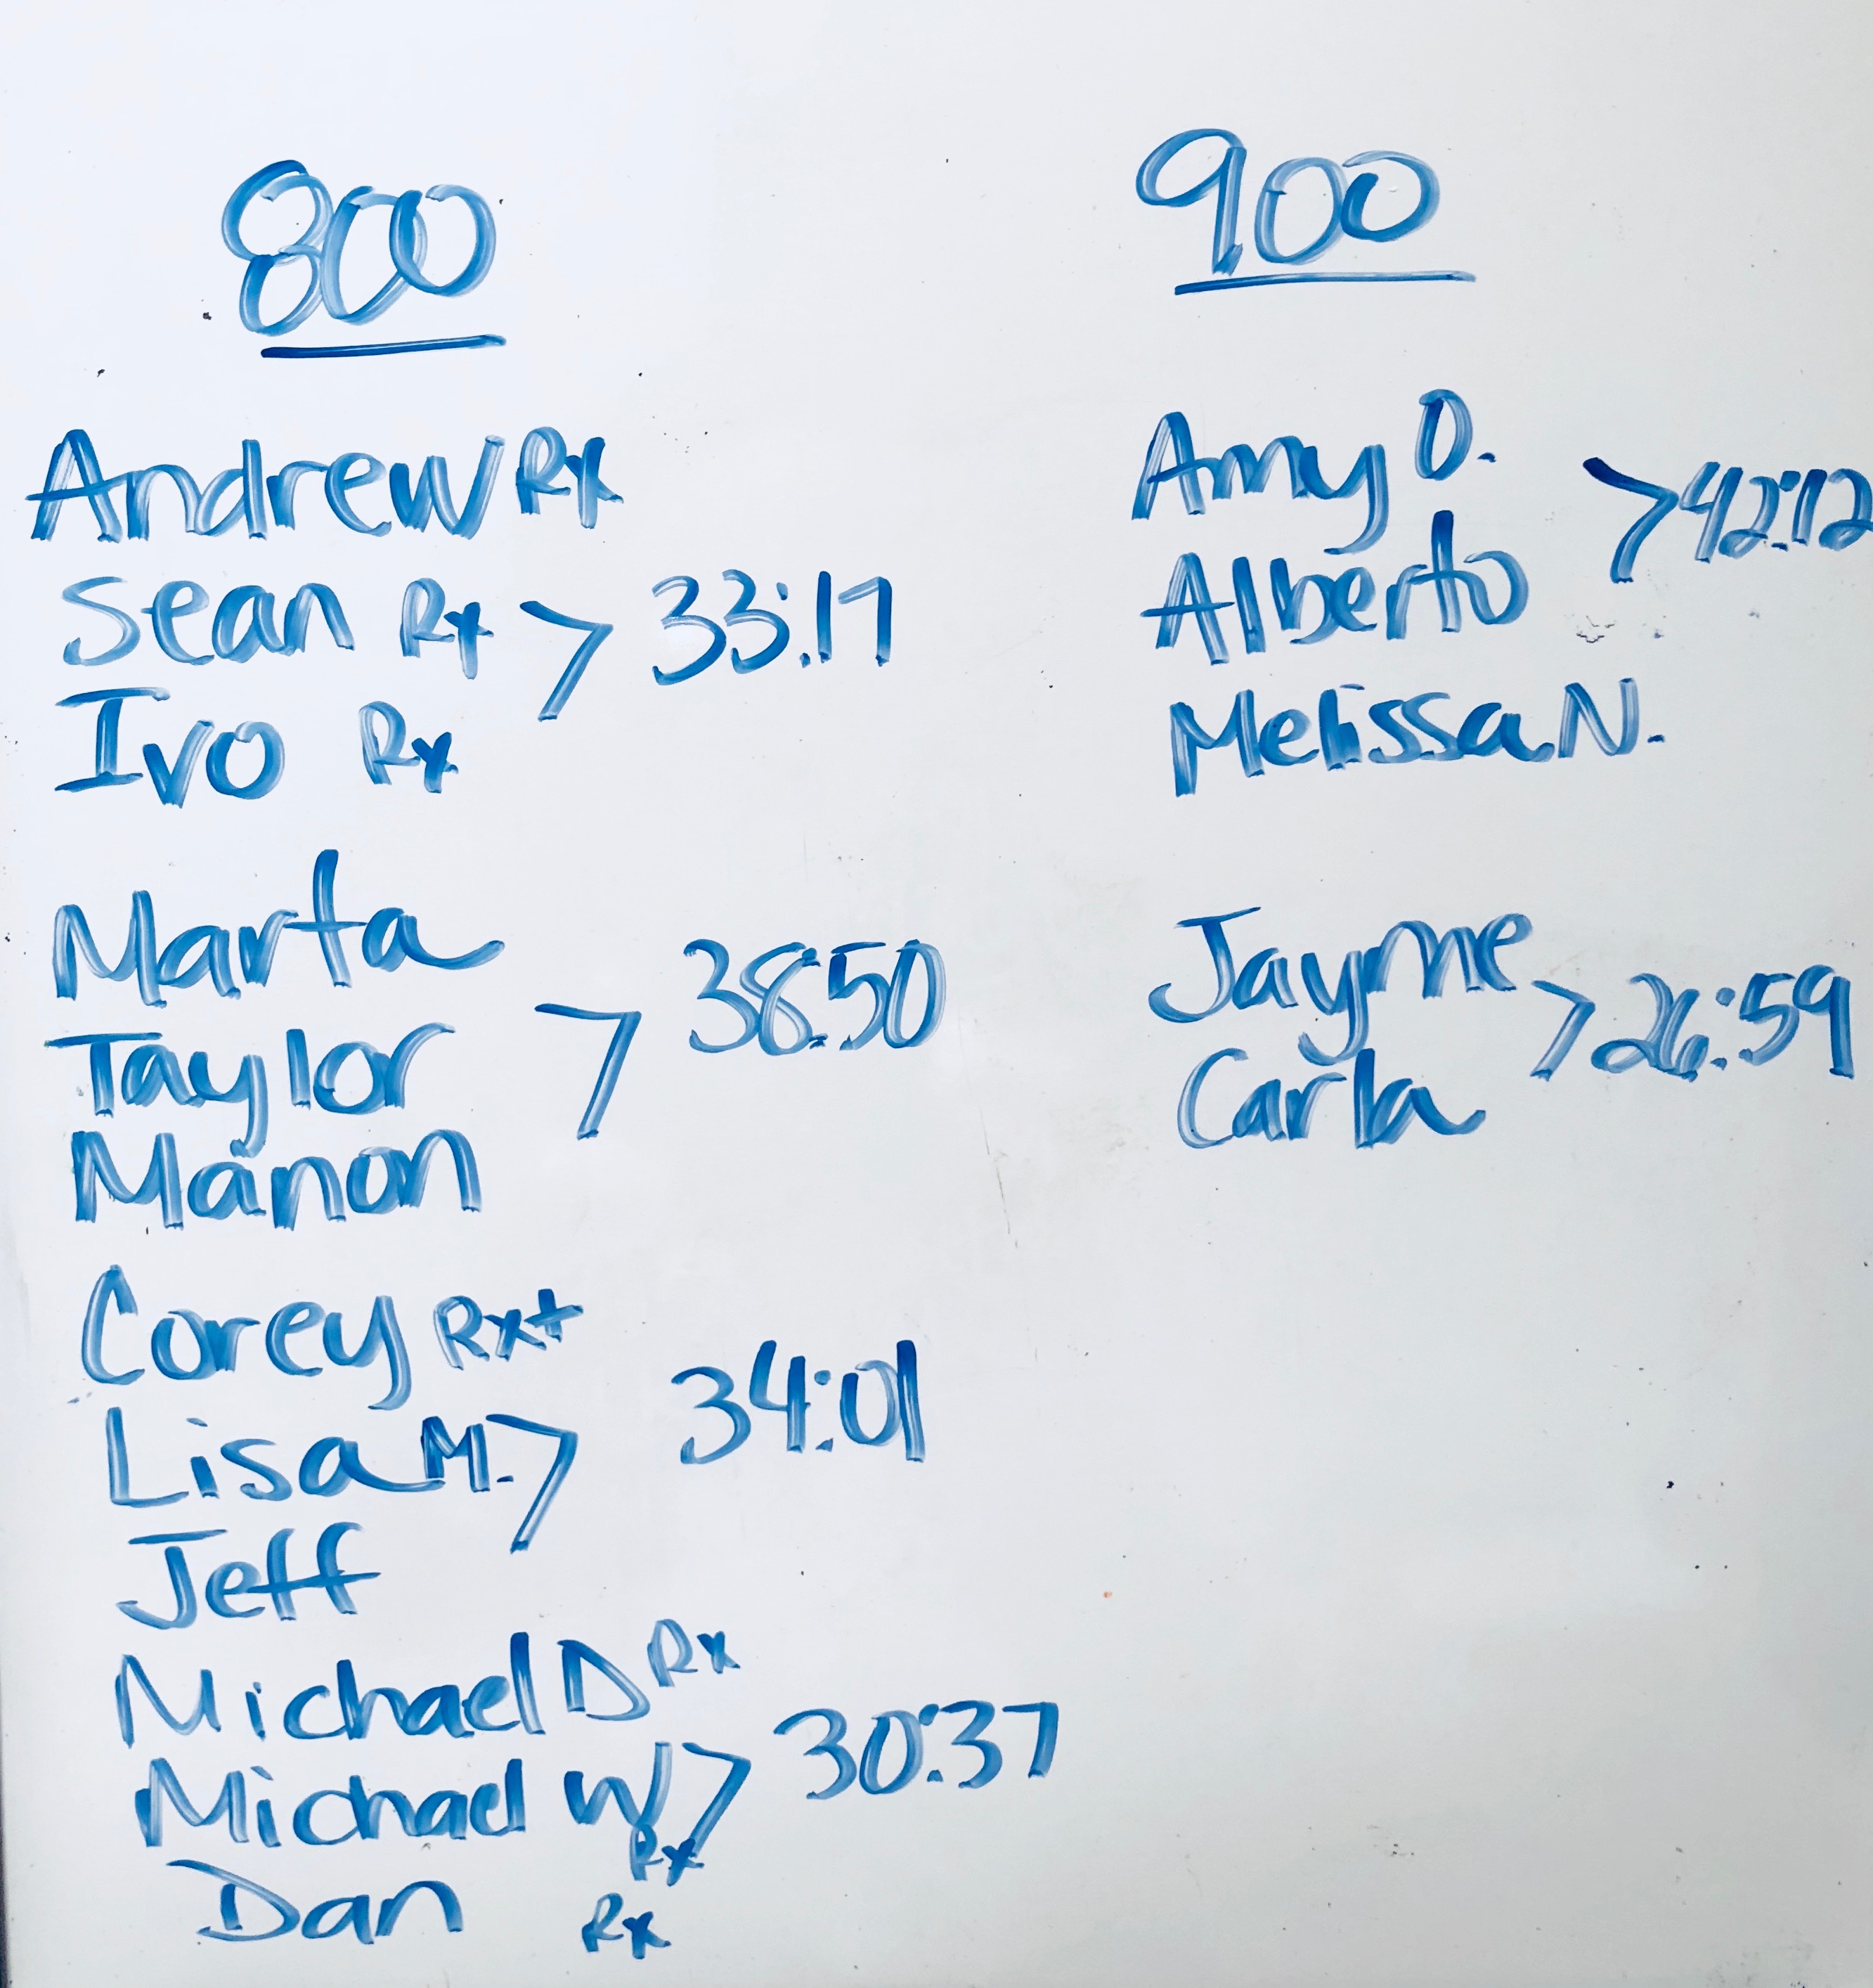 800
Andrew Rx
Sean Rx > 33:17
Ivo Rx
Marta
Taylor > 38:50
Manon
Corey Rx+
Lisa M. > 34:01
Jeff
Michael D Rx
Michael W Rx > 30:37
Dan Rx
900
Amy O. > 42:12
Alberto
Melissa N.
Jayme > 26:59
Carla